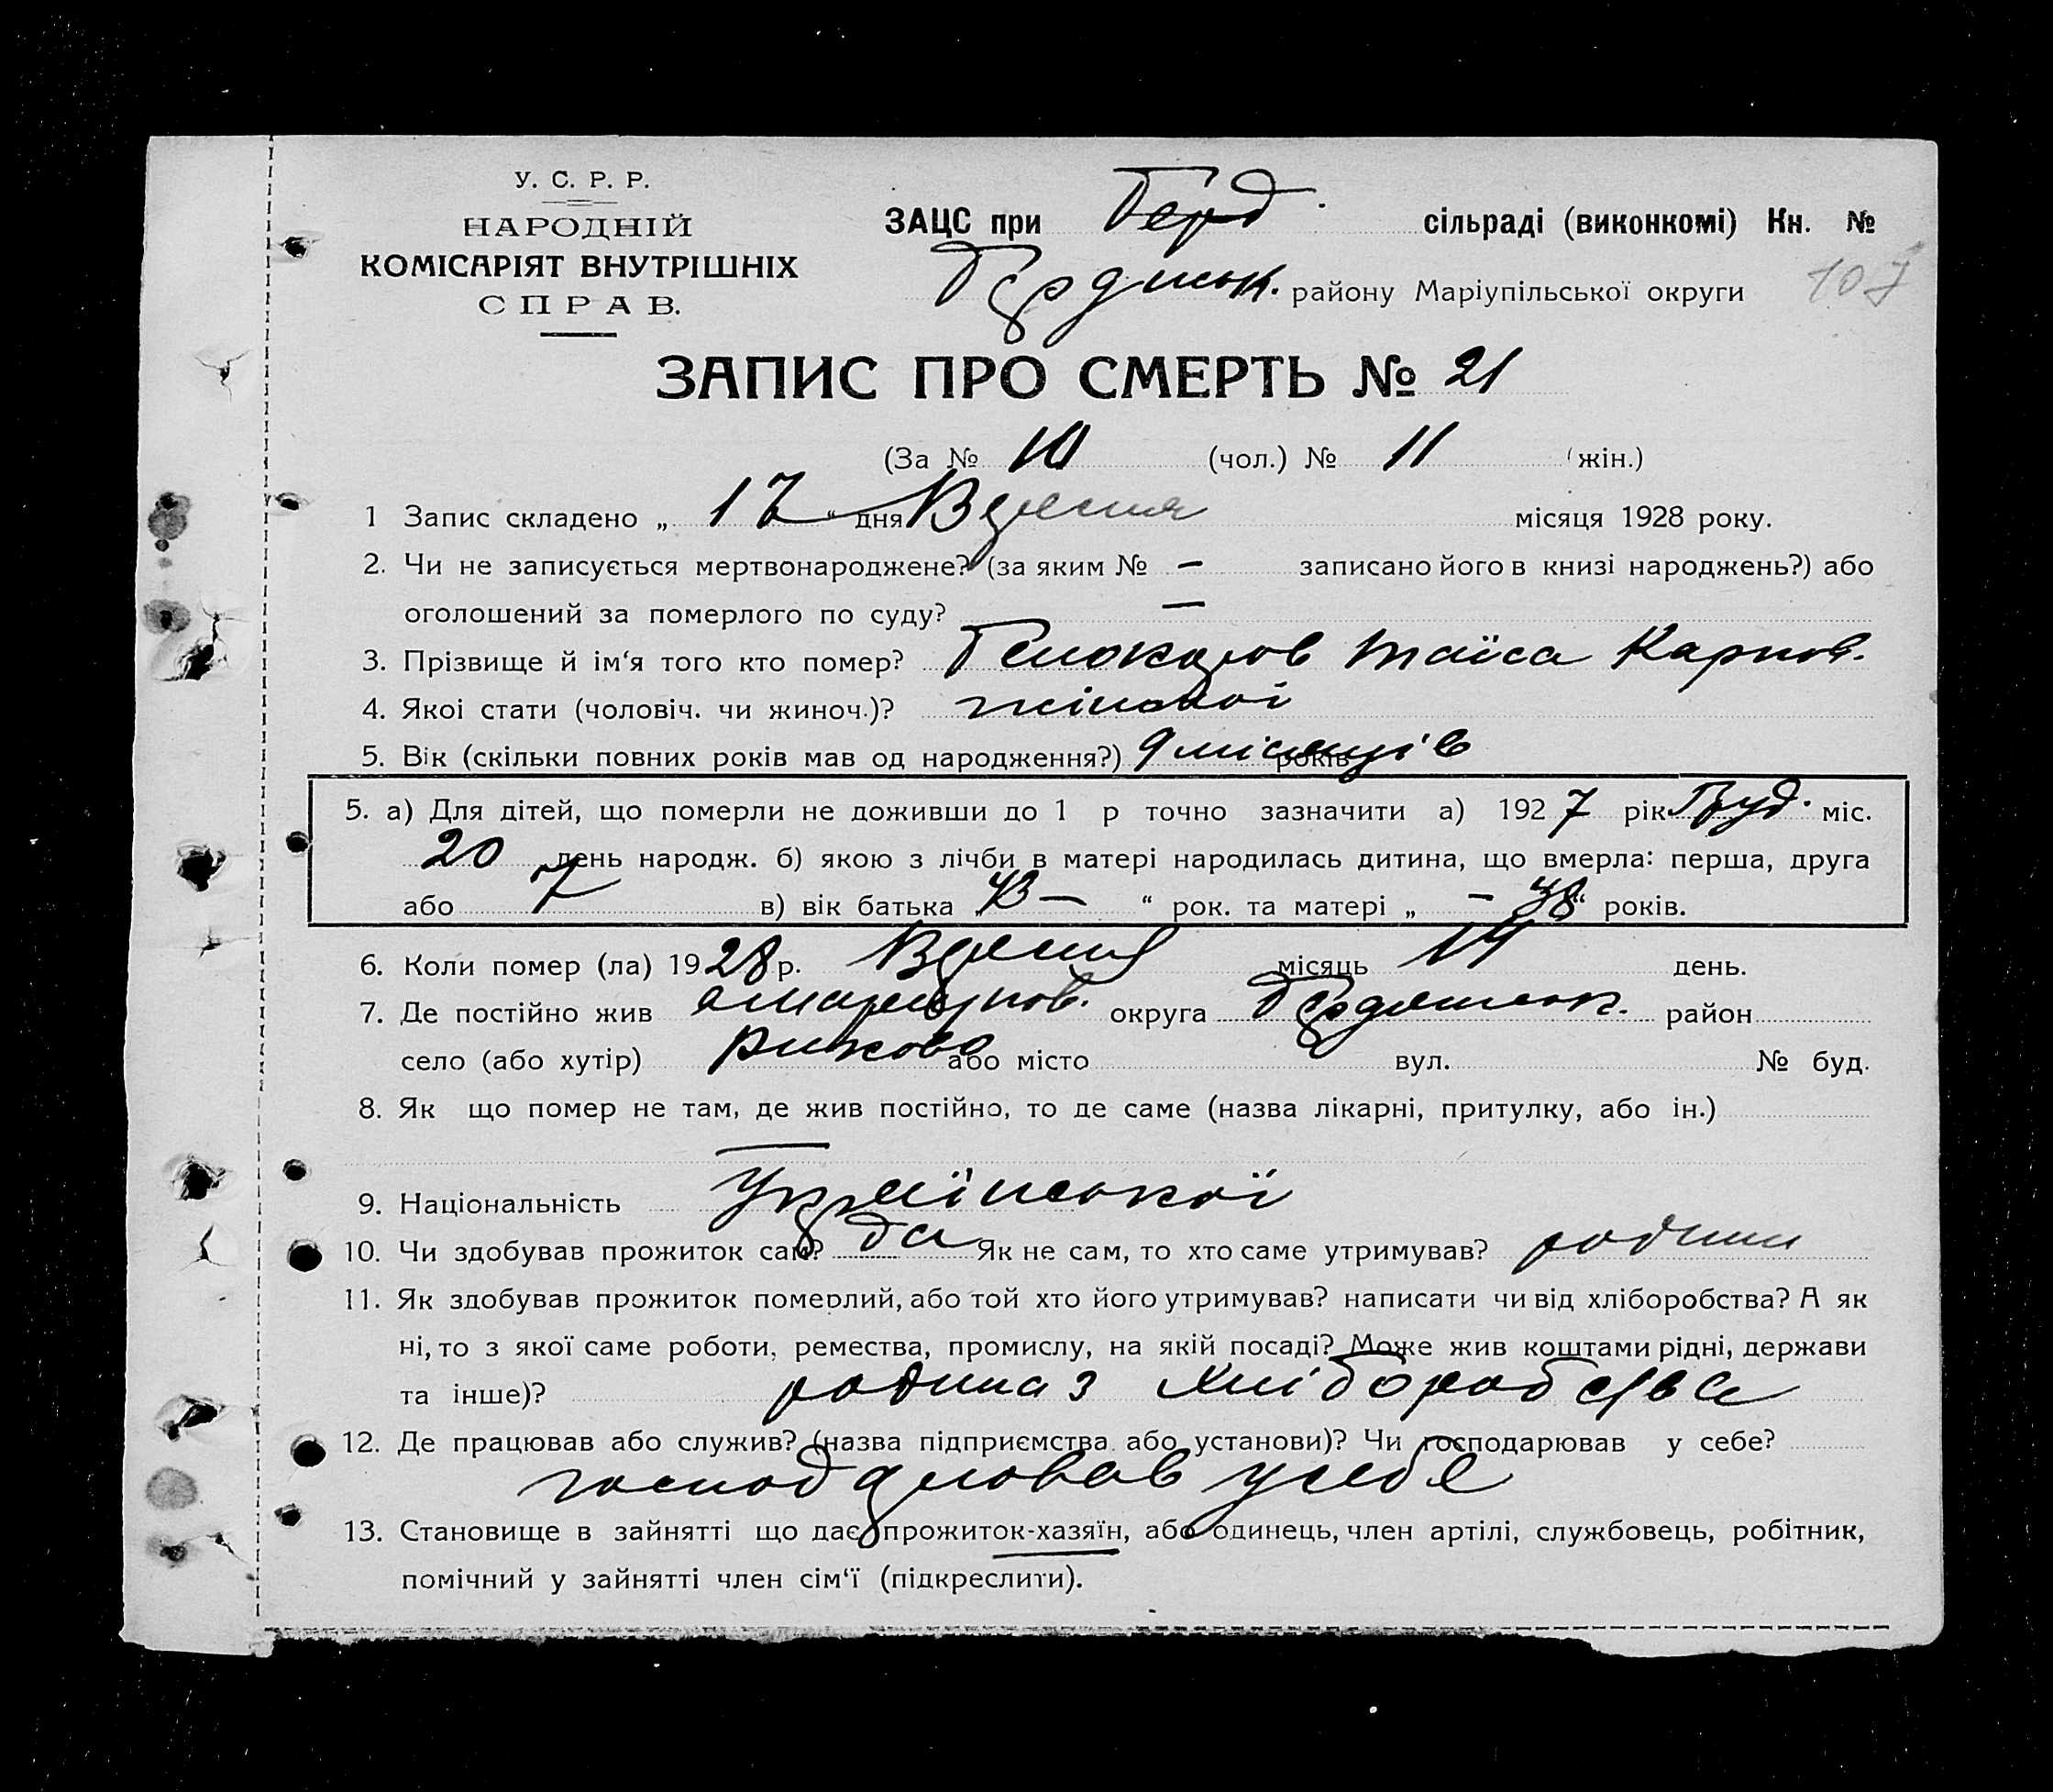 У. С. Р. Р.
НАРОДНІЙ
КОМІСАРІЯТ ВНУТРІШНІХ
СПРАВ.
ЗАЦС при Берд. сільраді (виконкомі) Кн. №
Бердянськ. району Маріупільської округи 107
ЗАПИС ПРО СМЕРТЬ № 21
(За № 10 (чол.) № 11 (жін.)
1 Запис складено „ 17 “ дня Вересня місяця 1928 року.
2. Чи не записується мертвонароджене? (за яким № – записано його в книзі народжень?) або
оголошений за померлого по суду? –
3. Прізвище й ім‘я того кто помер? Таїса Карпов.
4. Якоі стати (чоловіч. чи жиноч.)? жіночої
5. Вік (скільки повних років мав од народження?) 9 місяців років
5. а) Для дітей, що померли не доживши до 1 р точно зазначити а) 1927 рік Груд. міс.
20 день народж. б) якою з лічби в матері народилась дитина, що вмерла: перша, друга
або 7 в) вік батька „ 43 – “ рок. та матері „ – 38 “ років.
6. Коли помер (ла) 1928 р. Вересня місяць 14 день.
7. Де постійно жив округа Бердянськ. район
село (або хутір) або місто вул. № буд.
8. Як що помер не там, де жив постійно, то де саме (назва лікарні, притулку, або ін.)
—
9. Національність Української
10. Чи здобував прожиток сам? да Як не сам, то хто саме утримував? родина
11. Як здобував прожиток померлий, або той хто його утримував? написати чи від хліборобства? А як
ні, то з якої саме роботи, ремества, промислу, на якій посаді? Може жив коштами рідні, держави
та інше)? родина з хліборобства
12. Де працював або служив? (назва підприємства або установи)? Чи господарював у себе?
господарював у себе
13. Становище в зайнятті що дає прожиток-хазяїн, або одинець, член артілі, службовець, робітник,
помічний у зайнятті член сім‘ї (підкреслити).